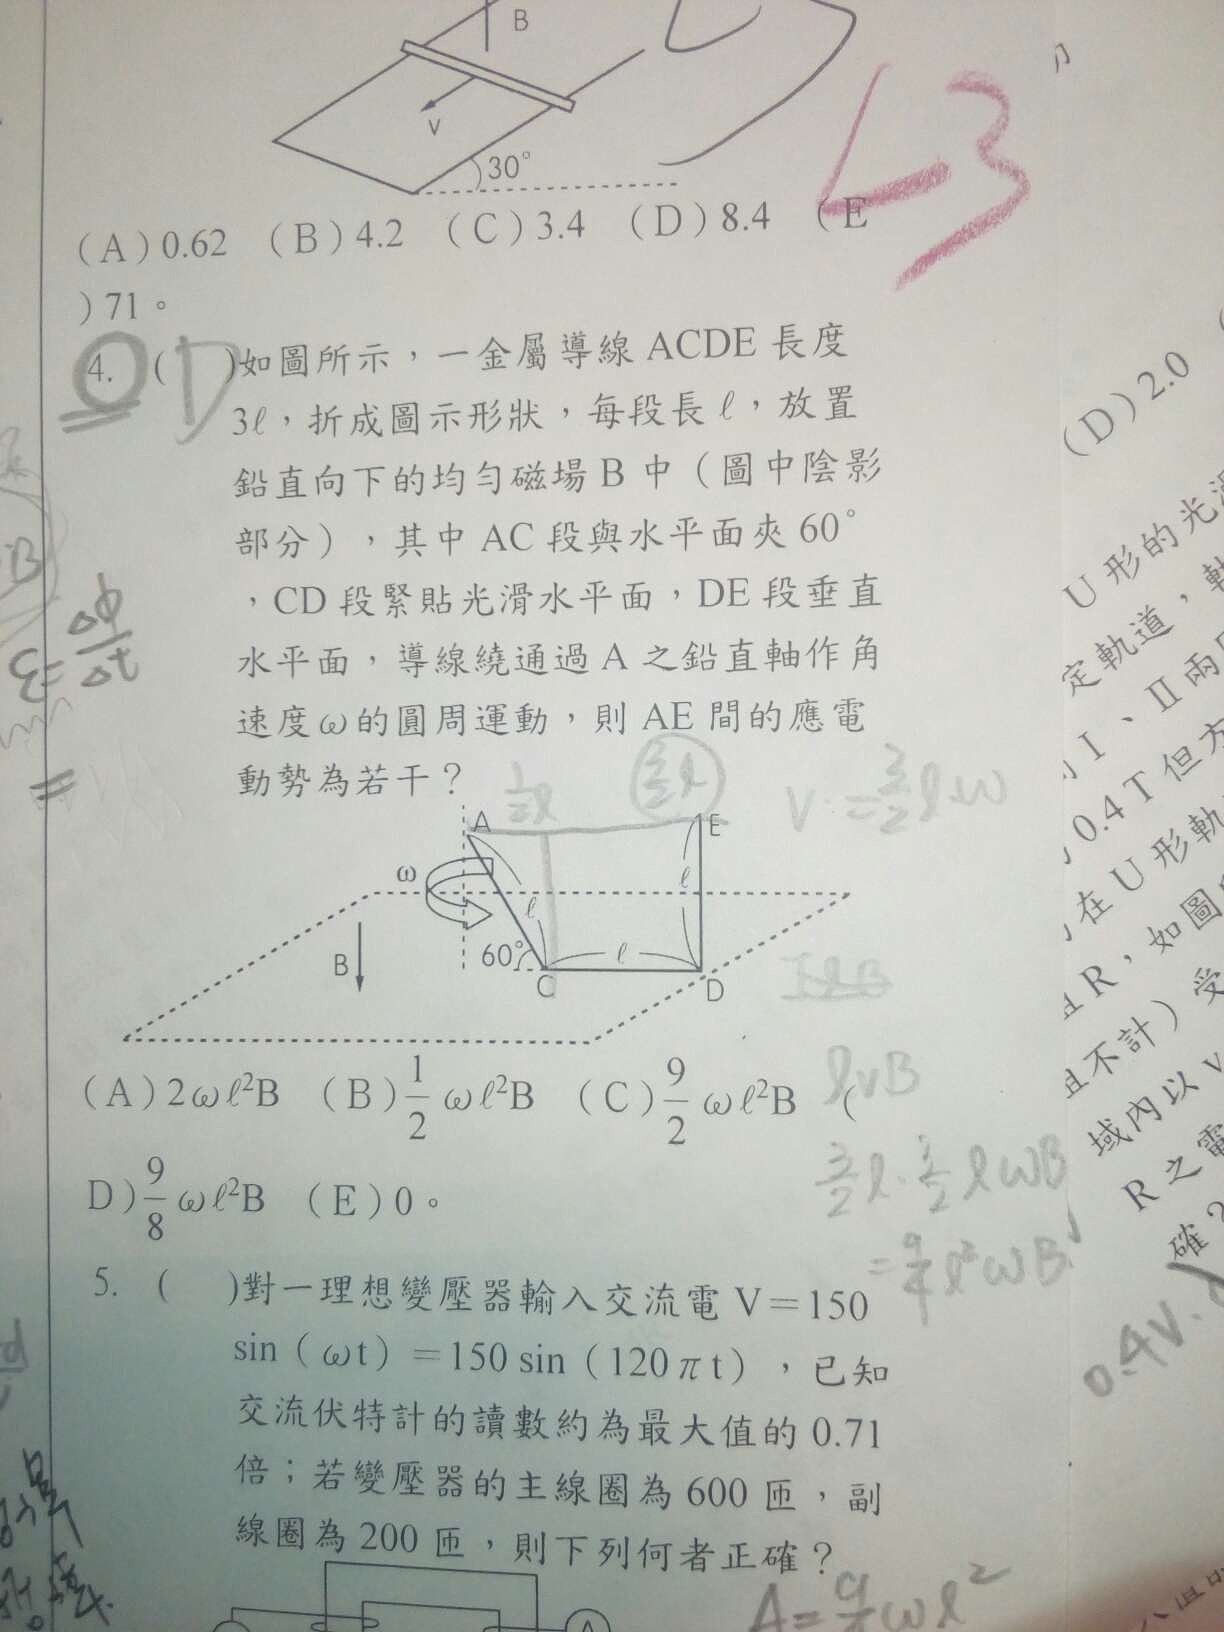 B
v
30°
(A)0.62 (B)4.2 (C)3.4 (D)8.4 (E
)71。
-3
4. ( D )如圖所示，一金屬導線 ACDE 長度
3ℓ，折成圖示形狀，每段長ℓ，放置
鉛直向下的均勻磁場 B 中（圖中陰影
部分），其中 AC 段與水平面夾 60°
，CD 段緊貼光滑水平面，DE 段垂直
水平面，導線繞通過 A 之鉛直軸作角
速度ω的圓周運動，則 AE 間的應電
動勢為若干？
ε=Δφ/Δt
=
1/2ℓ
3/2ℓ
V=3/2ℓω
A
E
ω
ℓ
ℓ
B
60°
ℓ
C
D
IℓB
(A)2ωℓ²B (B)1/2 ωℓ²B (C)9/2 ωℓ²B (
D)9/8 ωℓ²B (E)0。
ℓvB
3/2ℓ·3/2ℓωB
=9/4ℓ²ωB
5. ( )對一理想變壓器輸入交流電 V=150
sin（ωt）=150 sin（120πt），已知
交流伏特計的讀數約為最大值的 0.71
倍；若變壓器的主線圈為 600 匝，副
線圈為 200 匝，則下列何者正確？
A
(D)2.0
U 形的光滑
定軌道，軌
I、II 兩
0.4 T 但方
在 U 形軌
R，如圖
且不計）受
域內以 v
R 之電
確？
0.4V.